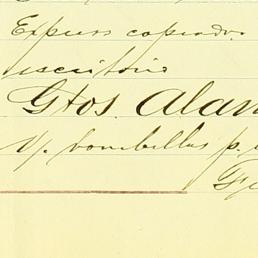 Expreso copiador
escritorio
Gtos. Alam
V/. bombillas p.